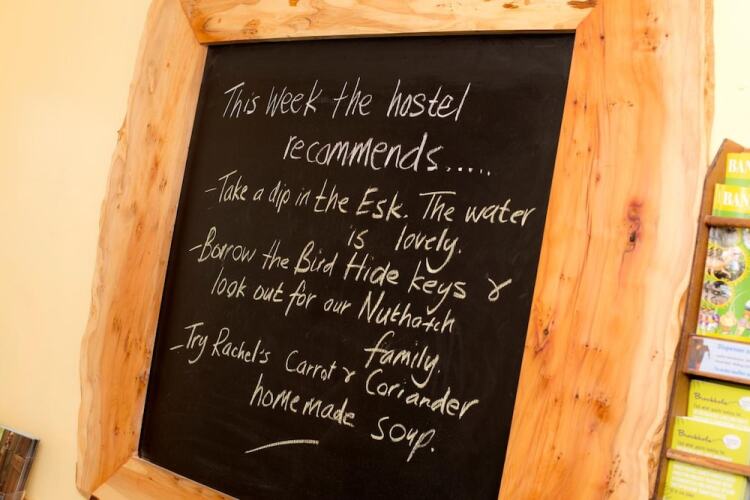 This Week the hostel
recommends.....
- Take a dip in the Esk. The water
is lovely.
- Borrow the Bird Hide keys &
look out for our Nuthatch
family.
- Try Rachel's Carrot & Coriander
homemade soup.
BAN
BAN
Brockhole
Brockhole